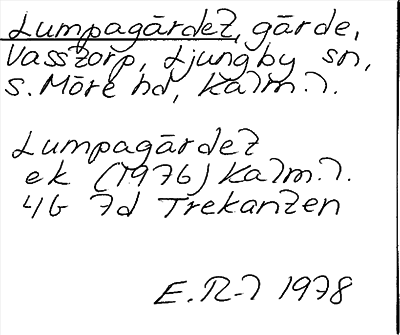 Lumpagärdet, gärde,
Vasstorp, Ljungby sn,
S. Möre hd, Kalm. l.
Lumpagärdet
ek (1976) Kalm. l.
4G 7d Trekanten
E. R-l 1978